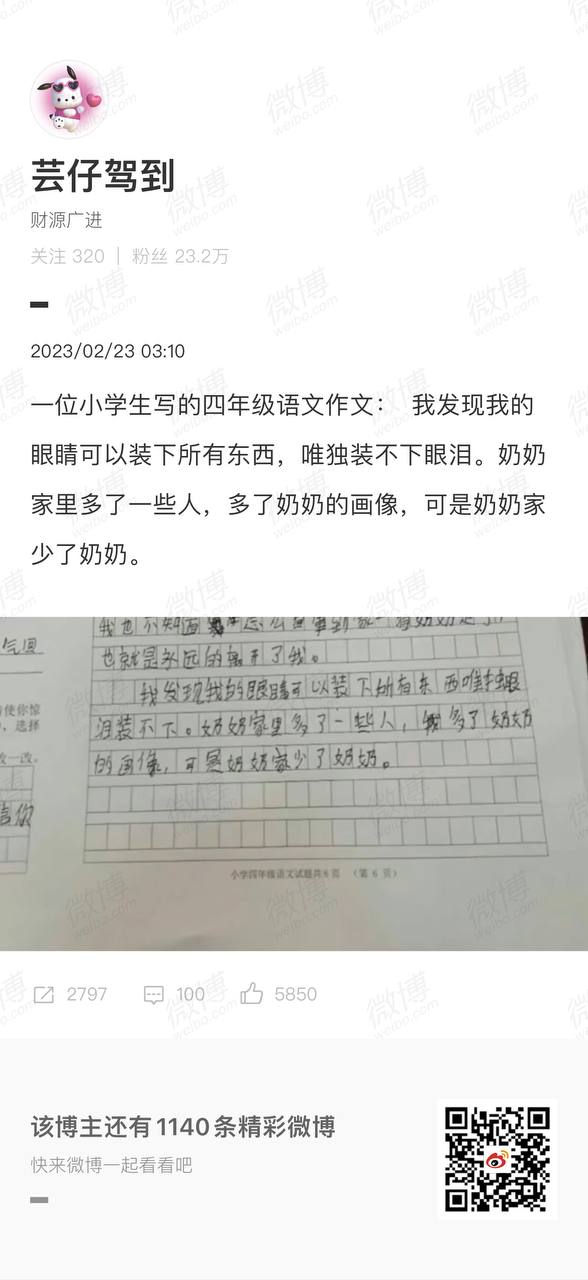 芸仔驾到
财源广进
关注 320 | 粉丝 23.2万
2023/02/23 03:10
一位小学生写的四年级语文作文： 我发现我的
眼睛可以装下所有东西，唯独装不下眼泪。奶奶
家里多了一些人，多了奶奶的画像，可是奶奶家
少了奶奶。
气回
我也不知道
也就是永远的离开了我。
使你惊
，选择
改一改。
言你
我发现我的眼睛可以装下所有东西唯独眼
泪装不下。奶奶家里多了一些人，我多了奶奶
的画像，可是奶奶家少了奶奶。
小学四年级语文试题共6页 （第 6 页）
2797 100 5850
该博主还有1140条精彩微博
快来微博一起看看吧
微博
weibo.com